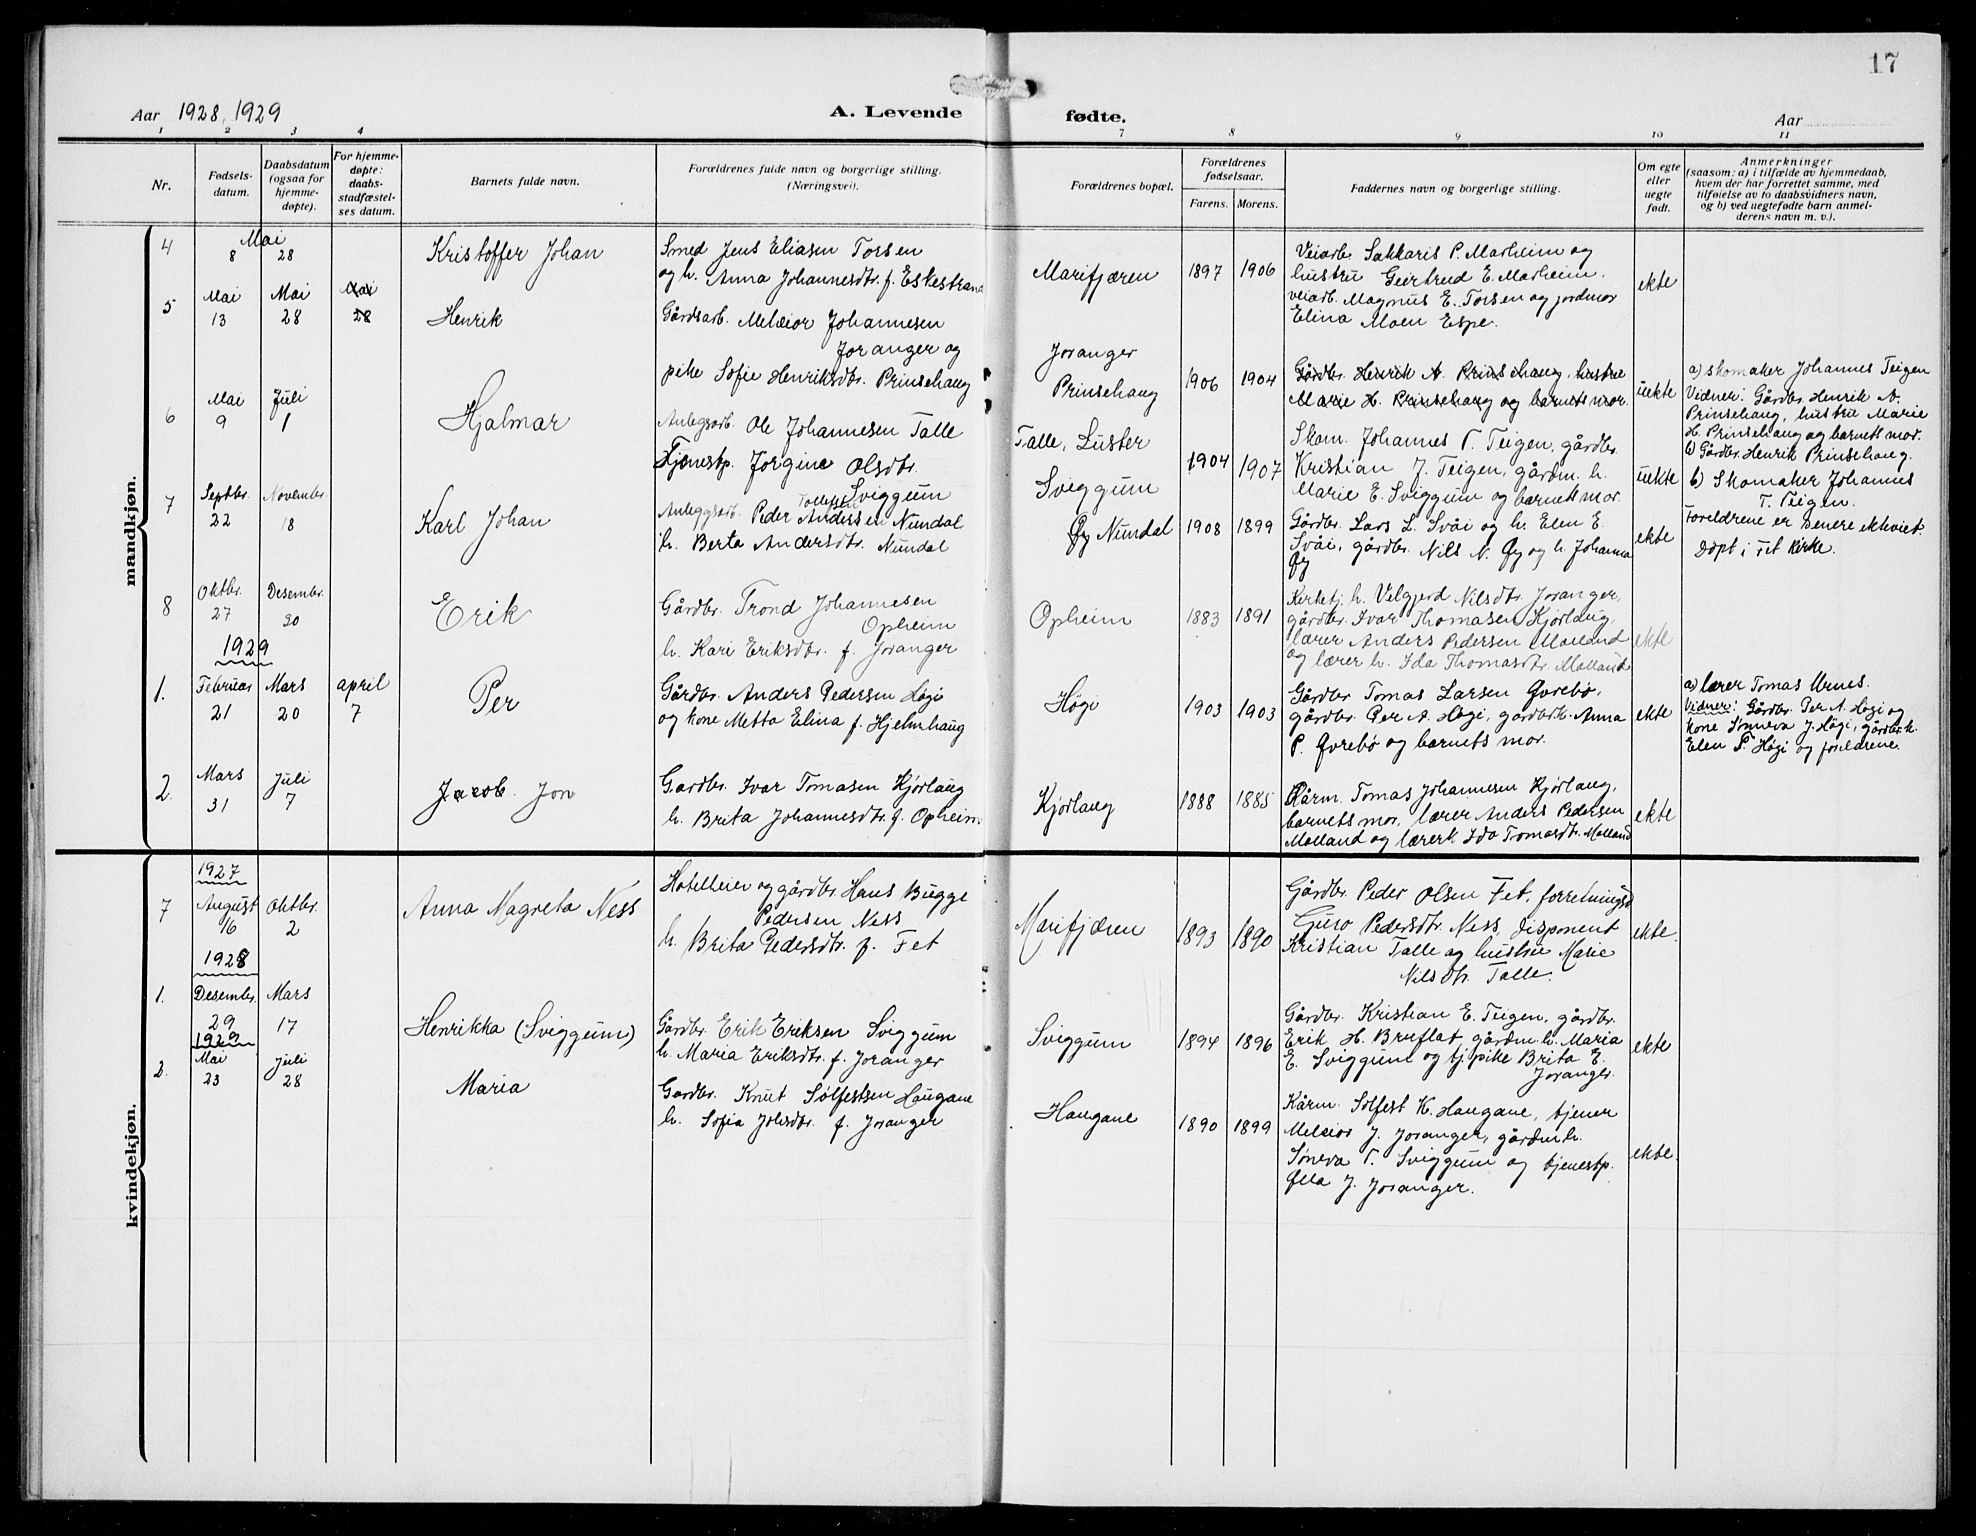 17
Aar 1928, 1929
A. Levende fødte.
Aar
1 2 3 4 7 8 9 10 11
Nr.
Fødsels-
datum.
Daabsdatum
(ogsaa for
hjemme-
døpte).
For hjemme-
døpte:
daabs-
stadfæstel-
ses datum.
Barnets fulde navn.
Forældrenes fulde navn og borgerlige stilling.
(Næringsvei).
Forældrenes bopæl.
Forældrenes
fødselsaar.
Farens. Morens.
Faddernes navn og borgerlige stilling.
Om egte
eller
uegte
født.
Anmerkninger
(saasom: a) i tilfælde av hjemmedaab,
hvem der har forrettet samme, med
tilføielse av to daabsvidners navn,
og b) ved uegtefødte barn anmel-
derens navn m. v.).
mandkjøn.
4
Mai
8 28
Kristoffer Johan
Smed Jens Eliasen Torsen
og h. Anna Johannesdtr. f. Eskestrand
Marifjæren
1897 1906
Veiarb. Sakkaris P. Marheim og
hustru Geertrud E. Marheim,
veiarb. Magnus E. Torsen og jordmor
Elina Moen Espe.
ekte
5
Mai Mai Mai
13 28 28
Henrik
Gårdsarb. Melkior Johannesen
Joranger og
pike Sofie Henriksdtr. Prinsehaug
Joranger
Prinsehaug
1906 1904
Gårdbr. Henrik A. Prinsehaug, hustru
Marie H. Prinsehaug og barnets mor.
uekte
a) skomaker Johannes Teigen
Vidner: Gårdbr. Henrik A.
Prinsehaug, hustru Marie
H. Prinsehaug og barnets mor.
b) Gårdbr. Henrik Prinsehaug.
6
Mai Juli
9 1
Hjalmar
Anlegsarb. Ole Johannesen Talle
Tjenestp. Jorgine Olsdtr.
Sviggum
Talle, Luster
Sviggum
1904 1907
Skom. Johannes T. Teigen, gårdbr.
Kristian J. Teigen, gårdm. h.
Marie E. Sviggum og barnets mor.
uekte
b) Skomaker Johannes
T. Teigen.
7
Septbr. November
22 18
Karl Johan
Tollefsen
Anleggsarb. Peder Andersen Nundal
h. Berta Andersdtr. Nundal
Øy Nundal
1908 1899
Gårdbr. Lars L. Svåi og h. Elen E.
Svåi, gårdbr. Nils N. Øy og h. Johanna
Øy
ekte
Foreldrene er senere ekteviet.
Døpt i Fet kirke.
8
Oktbr. Desembr.
27 30
Erik
Gårdbr. Trond Johannesen
Opheim
h. Kari Eriksdtr. f. Joranger
Opheim
1883 1891
Kirketj. h. Velgjerd Nilsdtr. Joranger,
gårdbr. Ivar Thomasen Kjørlaug,
lærer Anders Pedersen Molland
og lærer h. Ida Thomasdtr. Molland
ekte
1929
1.
Februar Mars april
21 20 7
Per
Gårdbr. Anders Pedersen Høgi
og kone Metta Elina f. Hjelmhaug
Høgi
1903 1903
Gårdbr. Tomas Larsen Øvrebø,
gårdbr. Per A. Høgi, gårdbr.k. Anna
P. Øvrebø og barnets mor.
ekte
a) lærer Tomas Urnes.
Vidner: Gårdbr. Per A. Høgi og
kone Synneva J. Høgi, gårdbr.k.
Elen P. Høgi og foreldrene.
2.
Mars Juli
31 7
Jacob Jon
Gardbr. Ivar Tomasen Kjørlaug
h. Brita Johannesdtr. f. Opheim
Kjørlaug
1888 1885
Kårm. Tomas Johannesen Kjørlaug,
barnets mor, lærer Anders Pedersen
Molland og lærerk. Ida Tomasdtr. Molland
ekte
kvindekjøn.
1927
7
August Oktbr.
16 2
Anna Magreta Ness
Hotelleier og gårdbr. Hans Bugge
Pedersen Ness
h. Brita Pedersdtr. f. Fet
Marifjæren
1893 1890
Gårdbr. Peder Olsen Fet, forretningsd.
Guro Pedersdtr. Ness, disponent
Kristian Talle og hustru Marie
Nilsdtr. Talle.
ekte.
1928
1.
Desembr. Mars
29 17
Henrikka (Sviggum)
Gårdbr. Erik Eriksen Sviggum
h. Maria Eriksdtr. f. Joranger
Sviggum
1894 1896
Gårdbr. Kristian E. Teigen, gårdbr.
Erik H. Bruflat, gårdm. h. Maria
E. Sviggum og tj.pike Brita E.
Joranger.
ekte
1929
2.
Mai Juli
23 28
Maria
Gardbr. Knut Sølfestsen Haugane
h. Sofia Johsdtr. f. Joranger
Haugane
1890 1899
Kårm. Sølfest K. Haugane, tjener
Melkior J. Joranger, gårdm. h.
Søneva T. Sviggum og tjenestp.
Olla J. Joranger.
ekte.